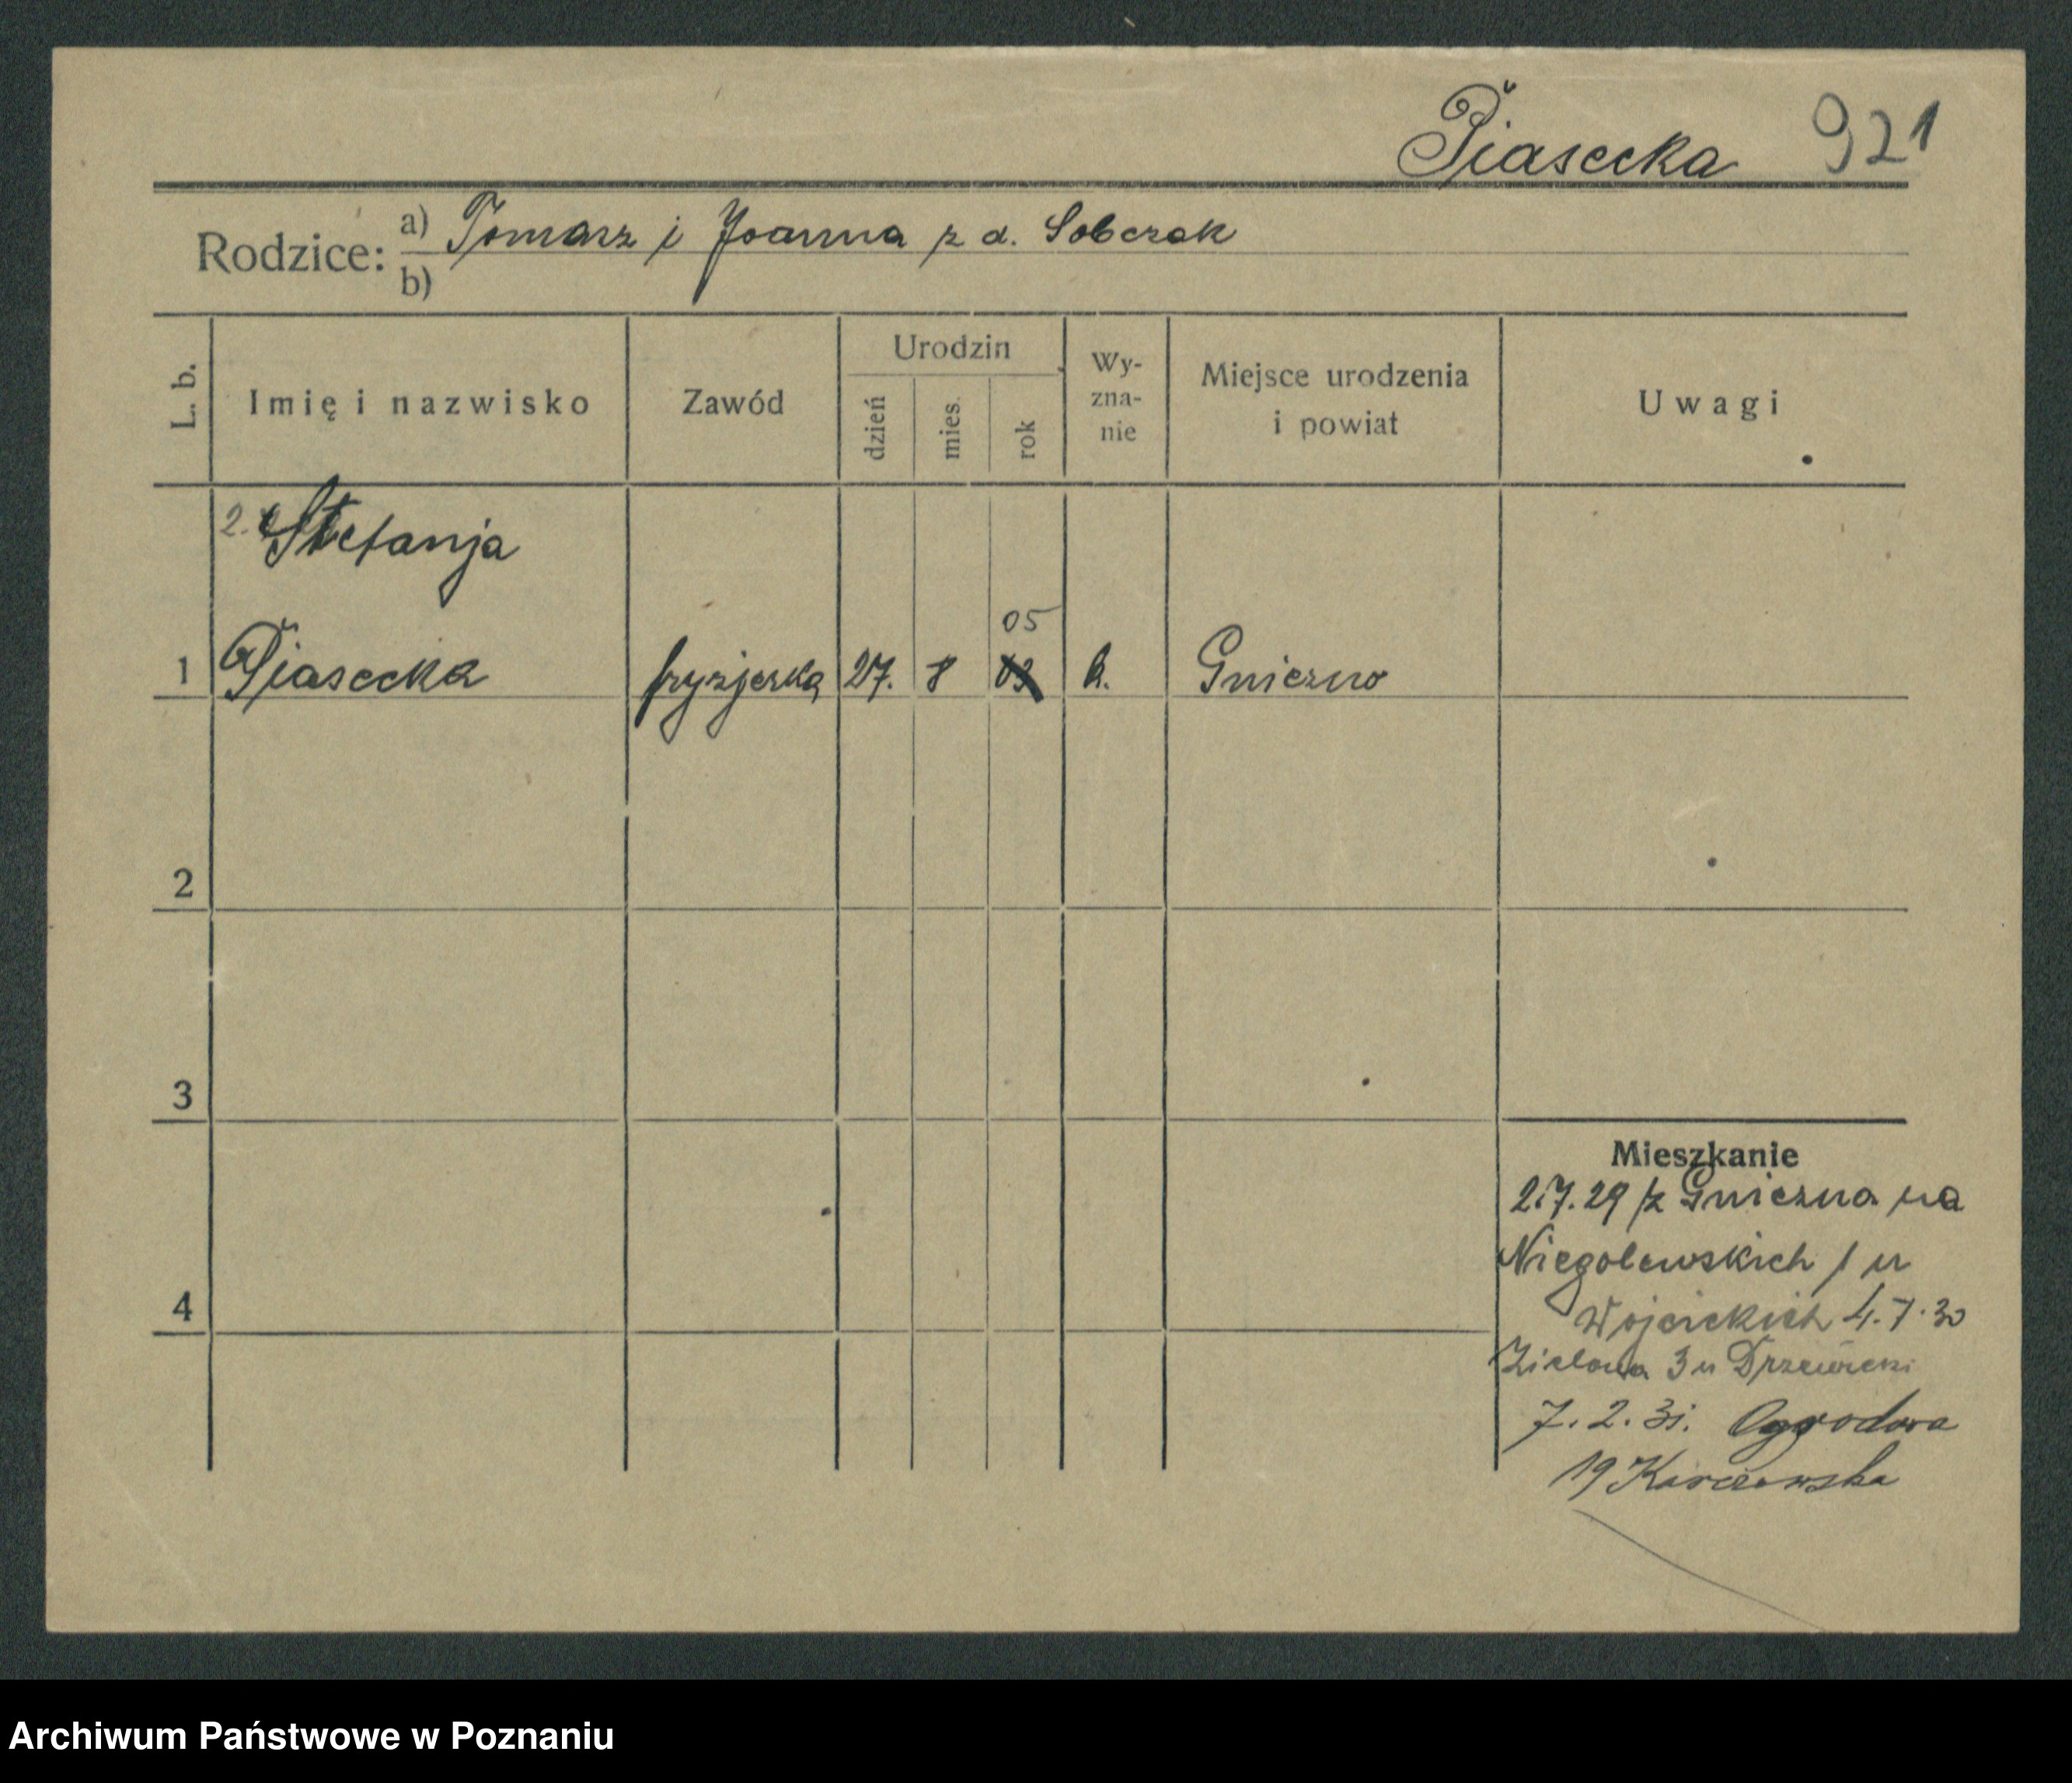 Piasecka 921
Rodzice: a) Tomasz i Joanna z d. Sobczak
b)
L. b. Imię i nazwisko Zawód Urodzin dzień mies. rok Wy-zna-nie Miejsce urodzenia i powiat Uwagi
2. Stefanja
05
1 Piasecka fryzjerka 27. 8 03 k. Gniezno
2
3
Mieszkanie
2.7.29 z Gniezna na
Niegolewskich / u
4
Wojcickich 4.7.30
Zielona 3 u Drzewiecki
7.2.31. Ogrodowa
19 Karczewska
Archiwum Państwowe w Poznaniu